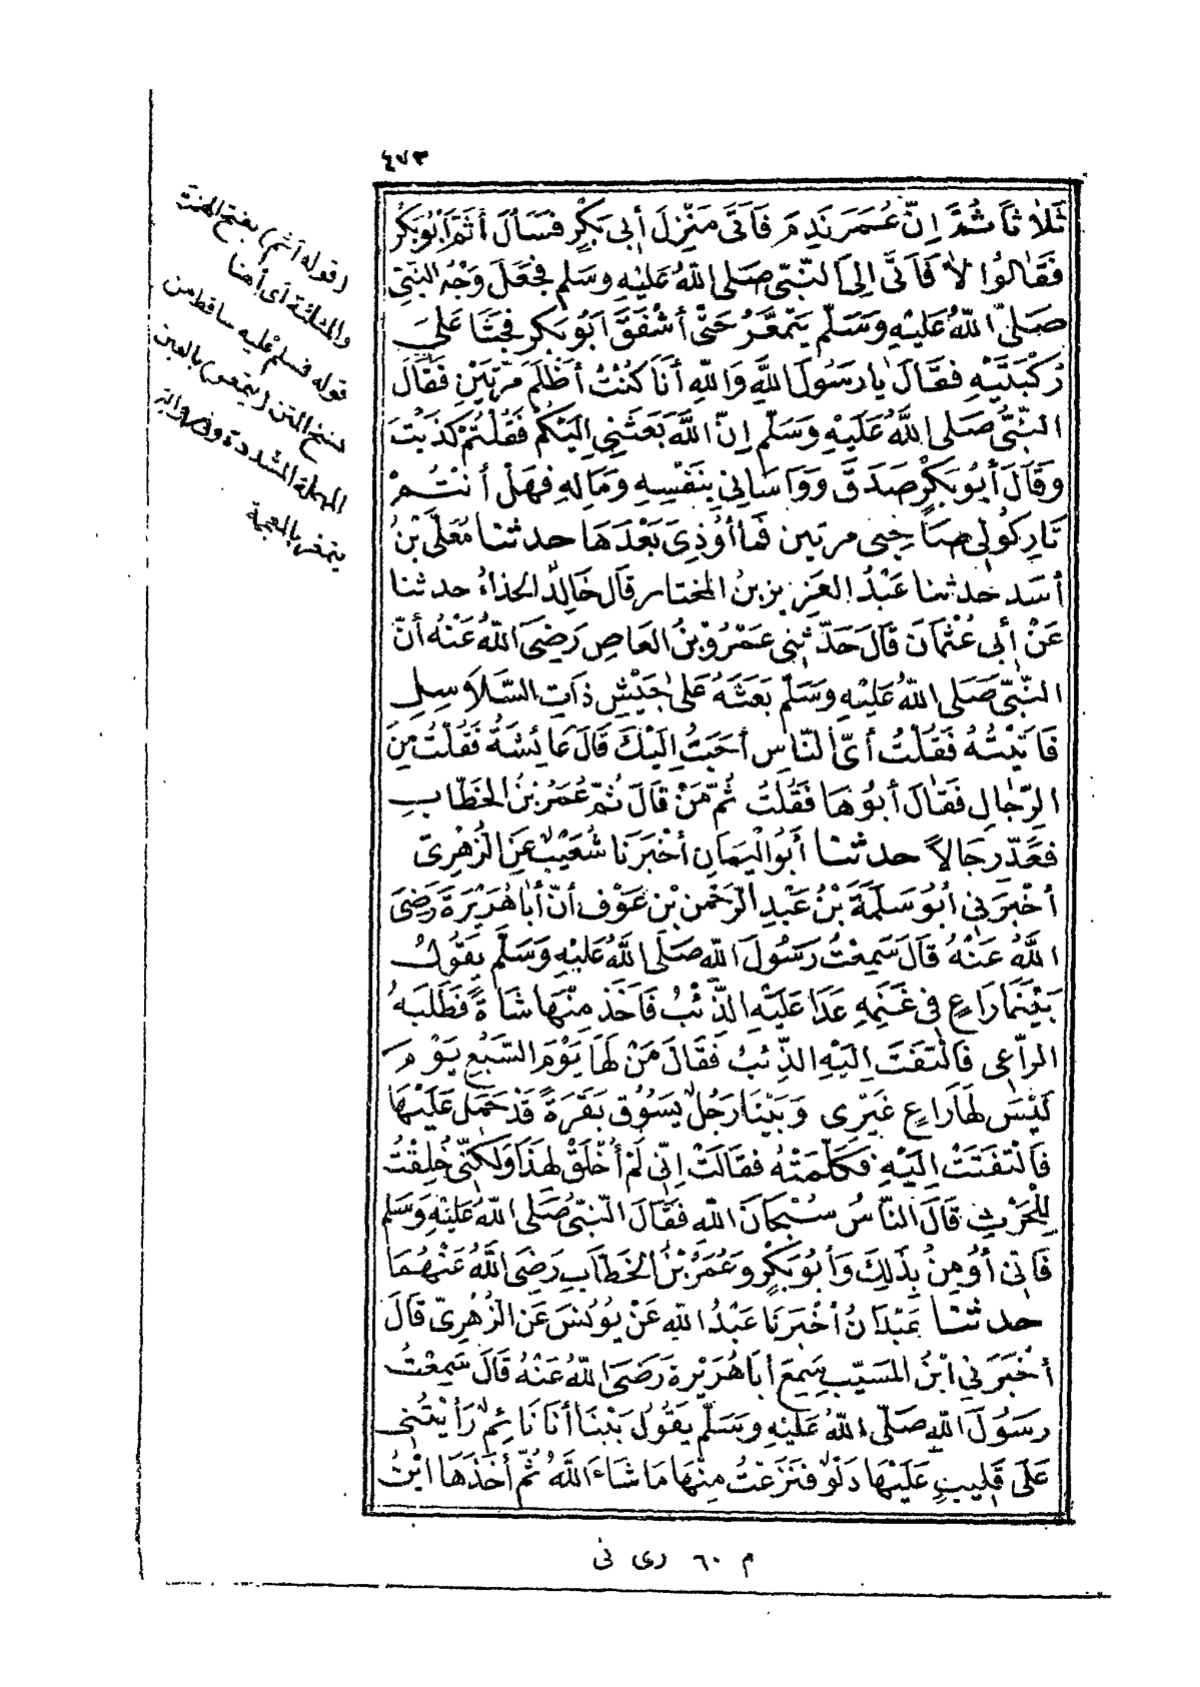 ٤٧٣
ثَلَاثًا ثُمَّ إِنَّ عُمَرَ نَدِمَ فَأَتَى مَنْزِلَ أَبِي بَكْرٍ فَسَأَلَ أَثَمَّ أَبُو بَكْرٍ
فَقَالُوا لَا فَأَتَى إِلَى النَّبِيِّ صَلَى اللَّهُ عَلَيْهِ وَسَلَّمَ فَجَعَلَ وَجْهُ النَّبِيِّ
صَلَّى اللَّهُ عَلَيْهِ وَسَلَّمَ يَتَمَعَّرُ حَتَّى أَشْفَقَ أَبُو بَكْرٍ فَجَثَا عَلَى
رُكْبَتَيْهِ فَقَالَ يَا رَسُولَ اللَّهِ وَاللَّهِ أَنَا كُنْتُ أَظْلَمَ مَرَّتَيْنِ فَقَالَ
النَّبِيُّ صَلَى اللَّهُ عَلَيْهِ وَسَلَّمَ إِنَّ اللَّهَ بَعَثَنِي إِلَيْكُمْ فَقُلْتُمْ كَذَبْتَ
وَقَالَ أَبُو بَكْرٍ صَدَقَ وَوَاسَانِي بِنَفْسِهِ وَمَالِهِ فَهَلْ أَنْتُمْ
تَارِكُو لِي صَاحِبِي مرتين فَمَا أُوذِيَ بَعْدَهَا حدثنا مُعَلَّى بْنُ
أَسَد حدثنا عَبْدُ العَزِيز بن المختار قَال خَالِدٌ الحذاءُ حدثنا
عَنْ أَبِي عُثْمَانَ قَالَ حَدَّثَنِي عَمْرُو بْنُ العَاصِ رَضِيَ اللَّهُ عَنْهُ أَنَّ
النَّبِيَّ صَلَى اللَّهُ عَلَيْهِ وَسَلَّمَ بَعَثَهُ عَلَى جَيْشِ ذَاتِ السَّلَاسِلِ
فَأَتَيْتُهُ فَقُلْتُ أَيُّ النَّاسِ أَحَبُّ إِلَيْكَ قَالَ عَائِشَةُ فَقُلْتُ مِنَ
الرِّجَالِ فَقَالَ أَبُوهَا فَقُلْتُ ثُمَّ مَنْ قَالَ ثُمَّ عُمَرُ بْنُ الخَطَّابِ
فَعَدَّ رِجَالًا حدثنا أَبُو الْيَمَانِ أَخْبَرَنَا شُعَيْبٌ عَنِ الزُّهْرِيِّ
أَخْبَرَنِي أَبُو سَلَمَةَ بْنُ عَبْدِ الرَّحْمَنِ بْنِ عَوْفٍ أَنَّ أَبَا هُرَيْرَةَ رَضِيَ
اللَّهُ عَنْهُ قَالَ سَمِعْتُ رَسُولَ اللَّهِ صَلَى اللَّهُ عَلَيْهِ وَسَلَّمَ يَقُولُ
بَيْنَمَا رَاعٍ فِي غَنَمِهِ عَدَا عَلَيْهِ الذِّئْبُ فَأَخَذَ مِنْهَا شَاةً فَطَلَبَهُ
الرَّاعِي فَالْتَفَتَ إِلَيْهِ الذِّئْبُ فَقَالَ مَنْ لَهَا يَوْمَ السَّبُعِ يَوْمَ
لَيْسَ لَهَا رَاعٍ غَيْرِي وَبَيْنَا رَجُلٌ يَسُوقُ بَقَرَةً قَدْ حَمَلَ عَلَيْهَا
فَالْتَفَتَتْ إِلَيْهِ فَكَلَّمَتْهُ فَقَالَتْ إِنِّي لَمْ أُخْلَقْ لِهَذَا وَلَكِنِّي خُلِقْتُ
لِلْحَرْثِ قَالَ النَّاسُ سُبْحَانَ اللَّهِ فَقَالَ النَّبِيُّ صَلَى اللَّهُ عَلَيْهِ وَسَلَّمَ
فَإِنِّي أُومِنُ بِذَلِكَ وَأَبُو بَكْرٍ وَعُمَرُ بْنُ الخَطَّابِ رَضِيَ اللَّهُ عَنْهُمَا
حدثنا عَبْدَانُ أَخْبَرَنَا عَبْدُ اللَّهِ عَنْ يُونُسَ عَنِ الزُّهْرِيِّ قَالَ
أَخْبَرَنِي ابْنُ المُسَيَّبِ سَمِعَ أَبَا هُرَيْرَةَ رَضِيَ اللَّهُ عَنْهُ قَالَ سَمِعْتُ
رَسُولَ اللَّهِ صَلَّى اللَّهُ عَلَيْهِ وَسَلَّمَ يَقُولُ بَيْنَا أَنَا نَائِمٌ رَأَيْتُنِي
عَلَى قَلِيبٍ عَلَيْهَا دَلْوٌ فَنَزَعْتُ مِنْهَا مَا شَاءَ اللَّهُ ثُمَّ أَخَذَهَا ابْنُ
(قوله أثم) بفتح الهمزة
والمثلثة أى أهنا
قوله فسلم عليه ساقط من
نسخ المتن (يتمعر) بالعين
المهملة المشددة وفى رواية
يتمغر بالمعجمة
م ٦٠ رى نى